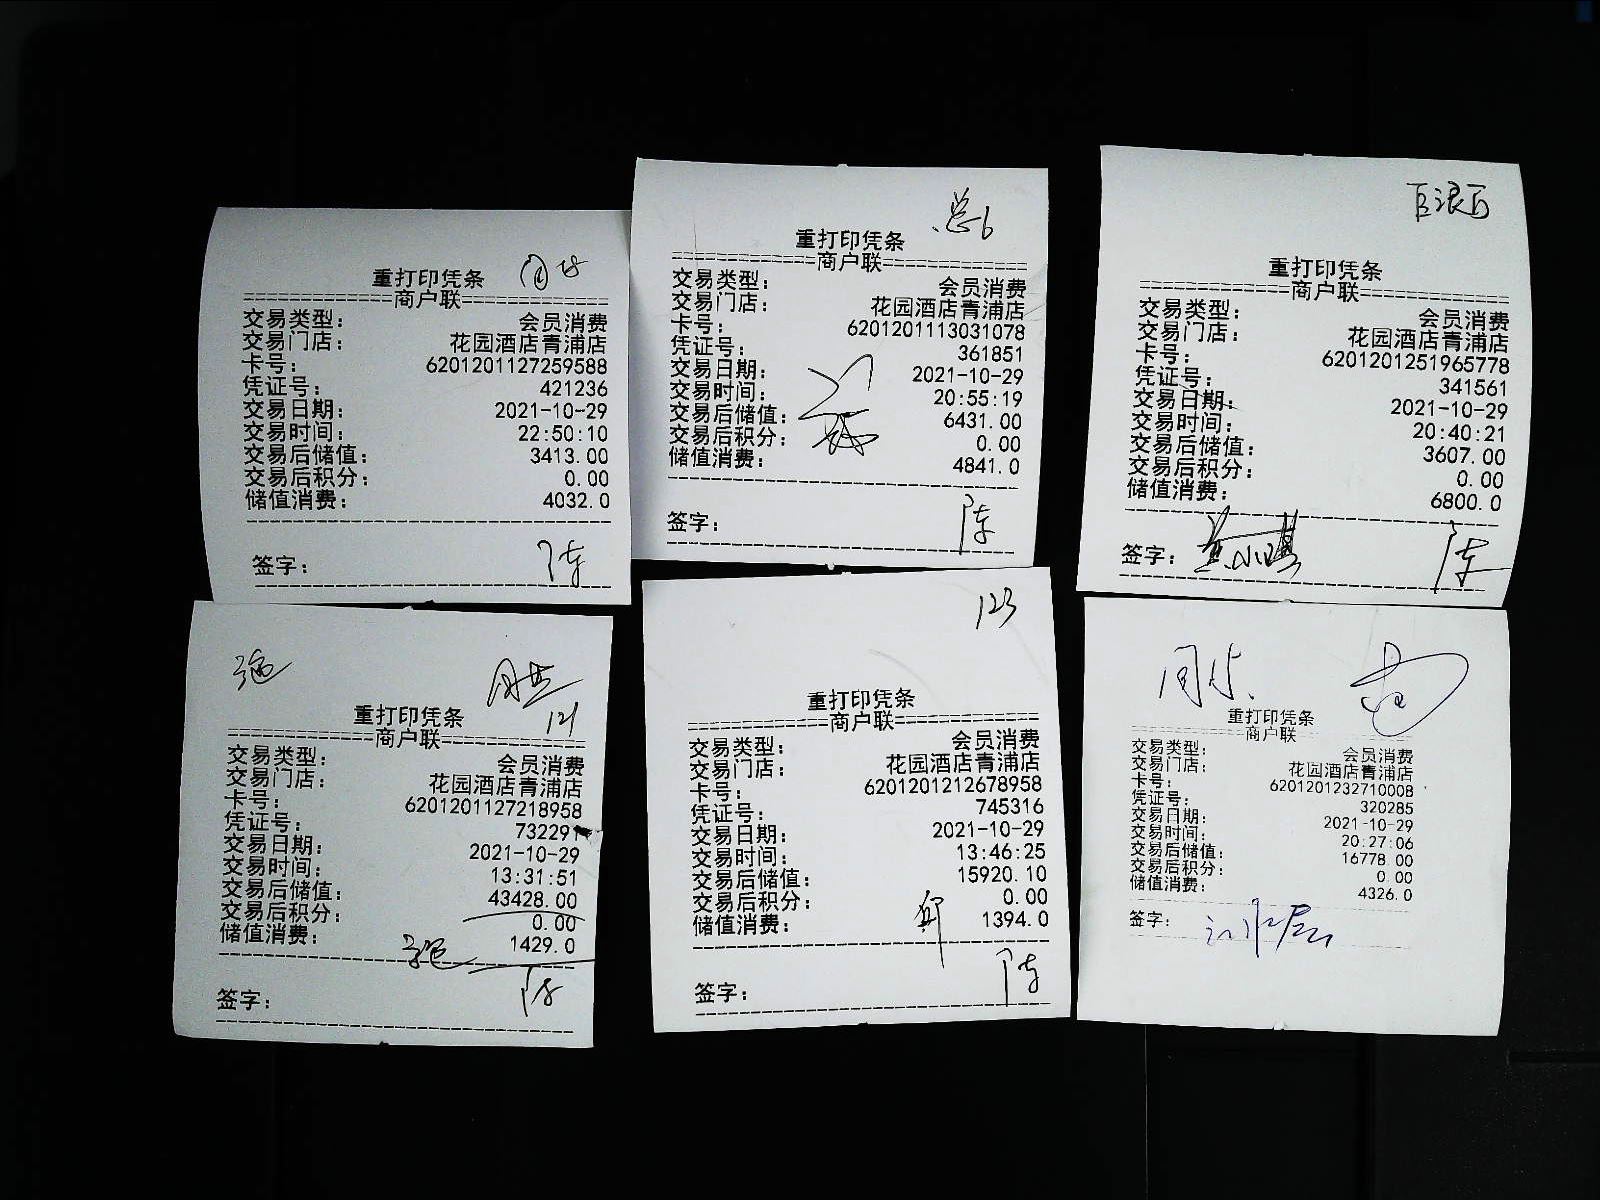 重打印凭条
商户联
交易类型: 会员消费
交易门店: 花园酒店青浦店
卡号: 6201201127259588
凭证号: 421236
交易日期: 2021-10-29
交易时间: 22:50:10
交易后储值: 3413.00
交易后积分: 0.00
储值消费: 4032.0
签字: 陈
总6
重打印凭条
商户联
交易类型: 会员消费
交易门店: 花园酒店青浦店
卡号: 6201201113031078
凭证号: 361851
交易日期: 2021-10-29
交易时间: 20:55:19
交易后储值: 6431.00
交易后积分: 0.00
储值消费: 4841.0
签字: 陈
重打印凭条
商户联
交易类型: 会员消费
交易门店: 花园酒店青浦店
卡号: 6201201251965778
凭证号: 341561
交易日期: 2021-10-29
交易时间: 20:40:21
交易后储值: 3607.00
交易后积分: 0.00
储值消费: 6800.0
签字: 陈
121
重打印凭条
商户联
交易类型: 会员消费
交易门店: 花园酒店青浦店
卡号: 6201201127218958
凭证号: 732291
交易日期: 2021-10-29
交易时间: 13:31:51
交易后储值: 43428.00
交易后积分: 0.00
储值消费: 1429.0
签字: 陈
123
重打印凭条
商户联
交易类型: 会员消费
交易门店: 花园酒店青浦店
卡号: 6201201212678958
凭证号: 745316
交易日期: 2021-10-29
交易时间: 13:46:25
交易后储值: 15920.10
交易后积分: 0.00
储值消费: 1394.0
签字: 陈
重打印凭条
商户联
交易类型: 会员消费
交易门店: 花园酒店青浦店
卡号: 6201201232710008
凭证号: 320285
交易日期: 2021-10-29
交易时间: 20:27:06
交易后储值: 16778.00
交易后积分: 0.00
储值消费: 4326.0
签字: